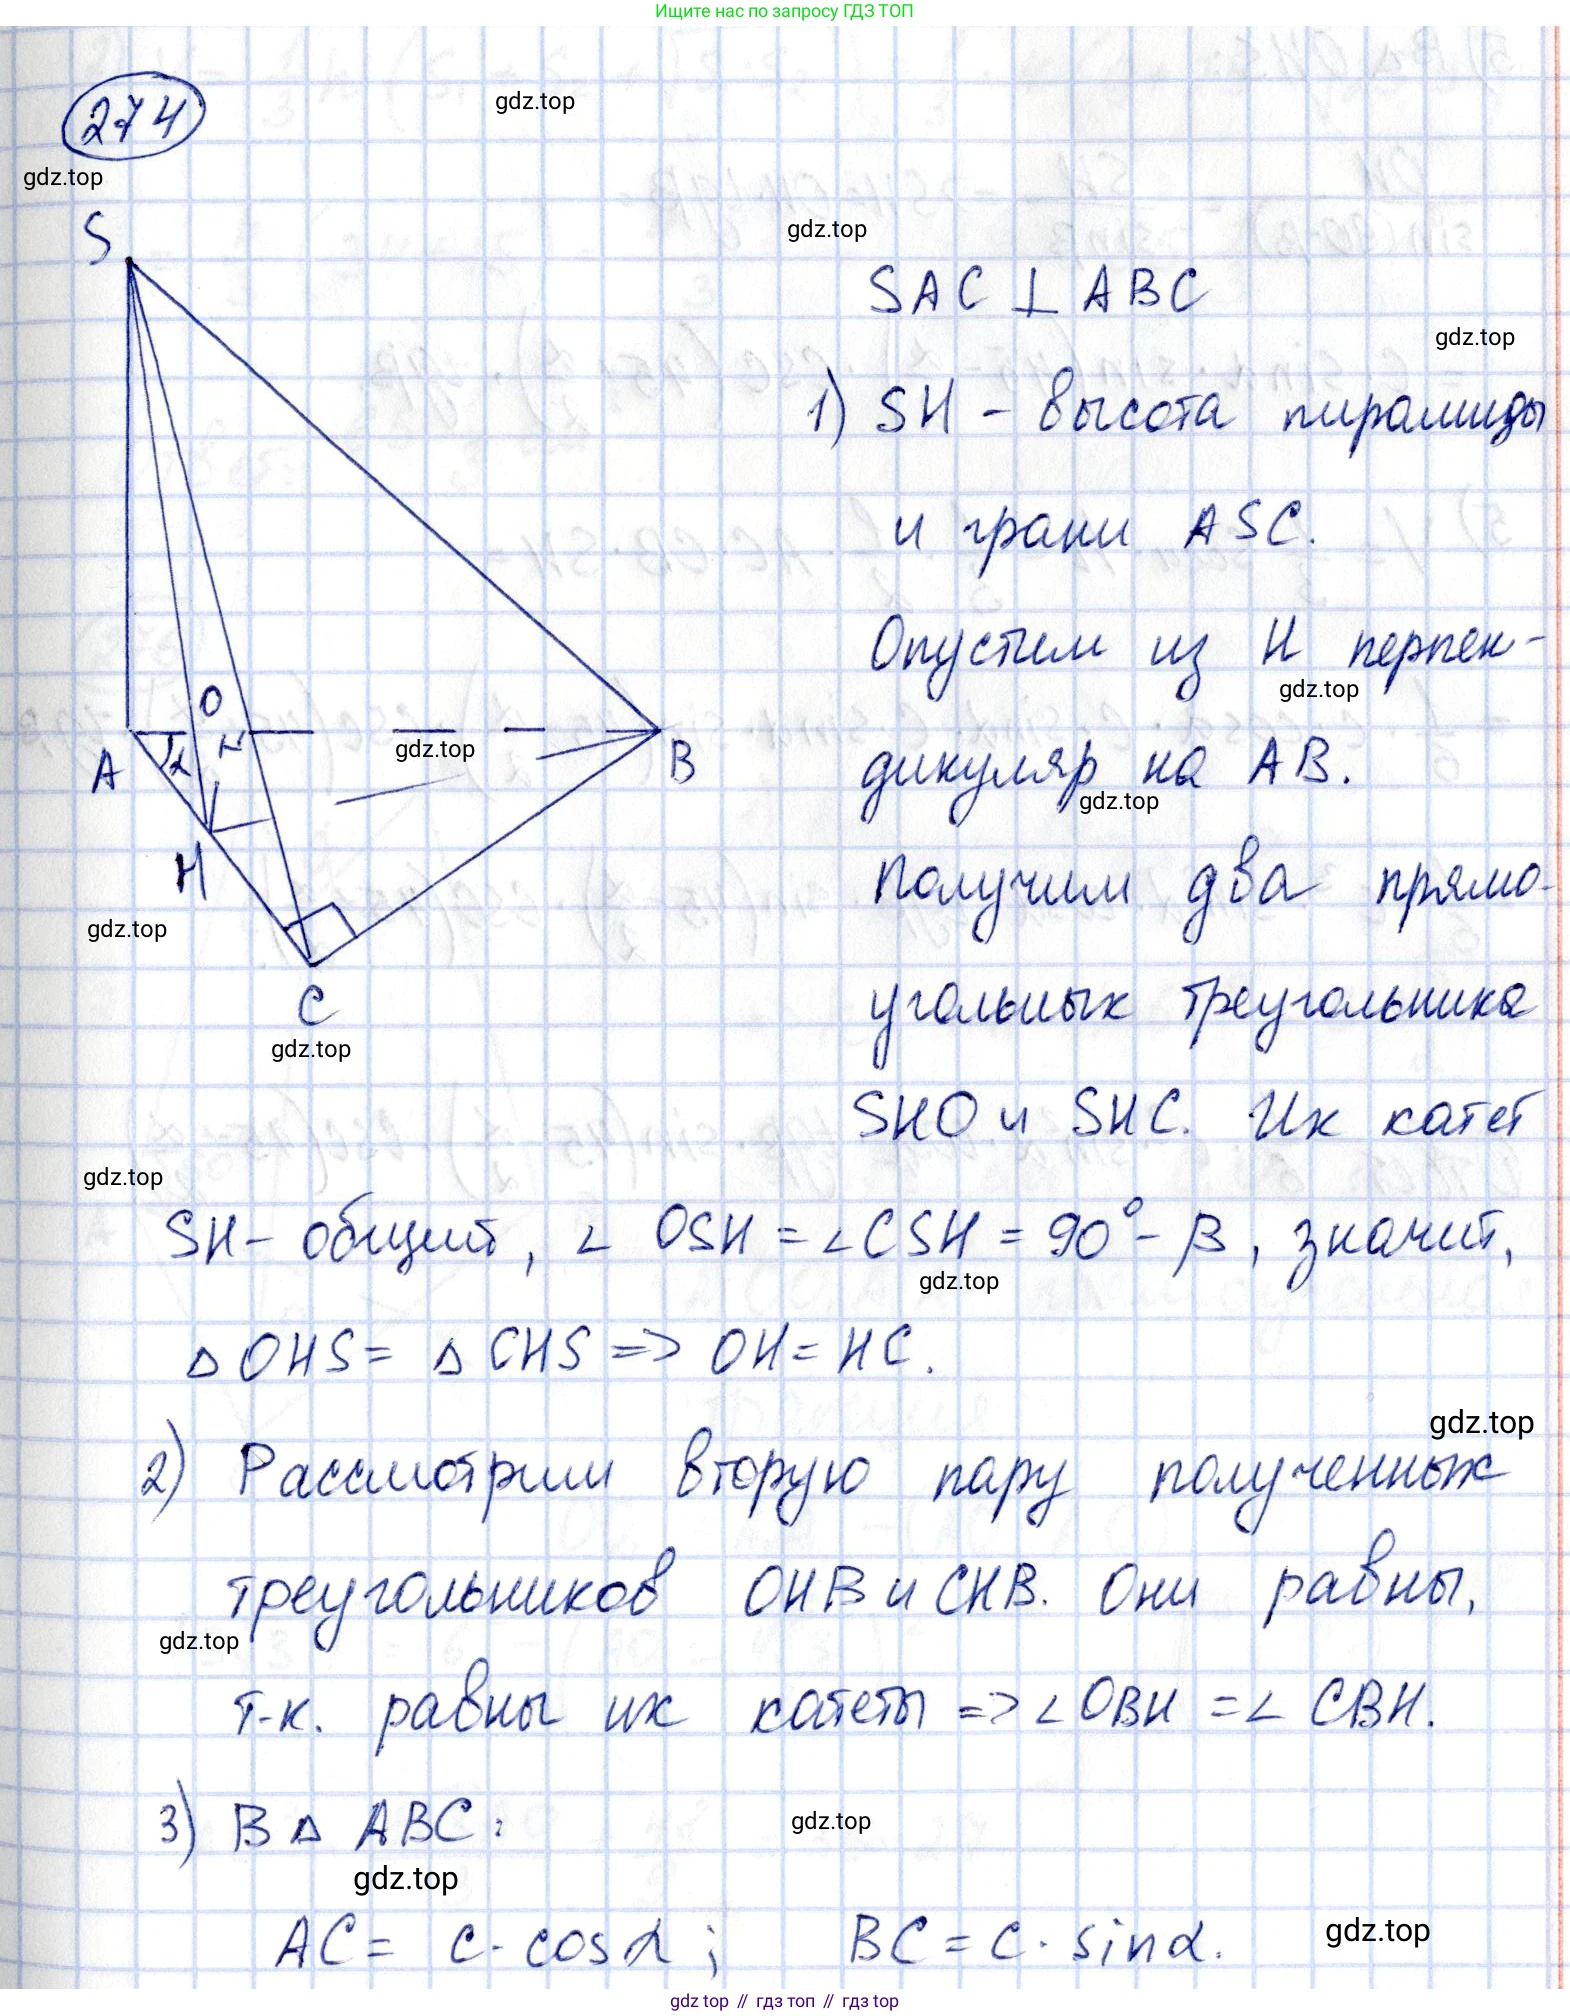 Ищите нас по запросу ГДЗ ТОП
274
gdz.top
gdz.top
S
gdz.top
SAC ⊥ ABC
gdz.top
1) SH - высота пирамиды
и грани ASC.
Опустим из H перпен-
gdz.top
O
A
α
gdz.top
B
дикуляр на AB.
gdz.top
H
Получим два прямо-
gdz.top
C
угольных треугольника
gdz.top
SHO и SHC. Их катет
gdz.top
SH - общий, ∠ OSH = ∠CSH = 90° - β, значит,
gdz.top
△ OHS = △ CHS => OH = HC.
gdz.top
2) Рассмотрим вторую пару полученных
треугольников OHB и CHB. Они равны,
gdz.top
т.к. равны их катеты => ∠OBH = ∠ CBH.
3) В △ ABC:
gdz.top
gdz.top
AC = c · cos α; BC = c · sin α.
gdz.top
gdz top // гдз топ // гдз top